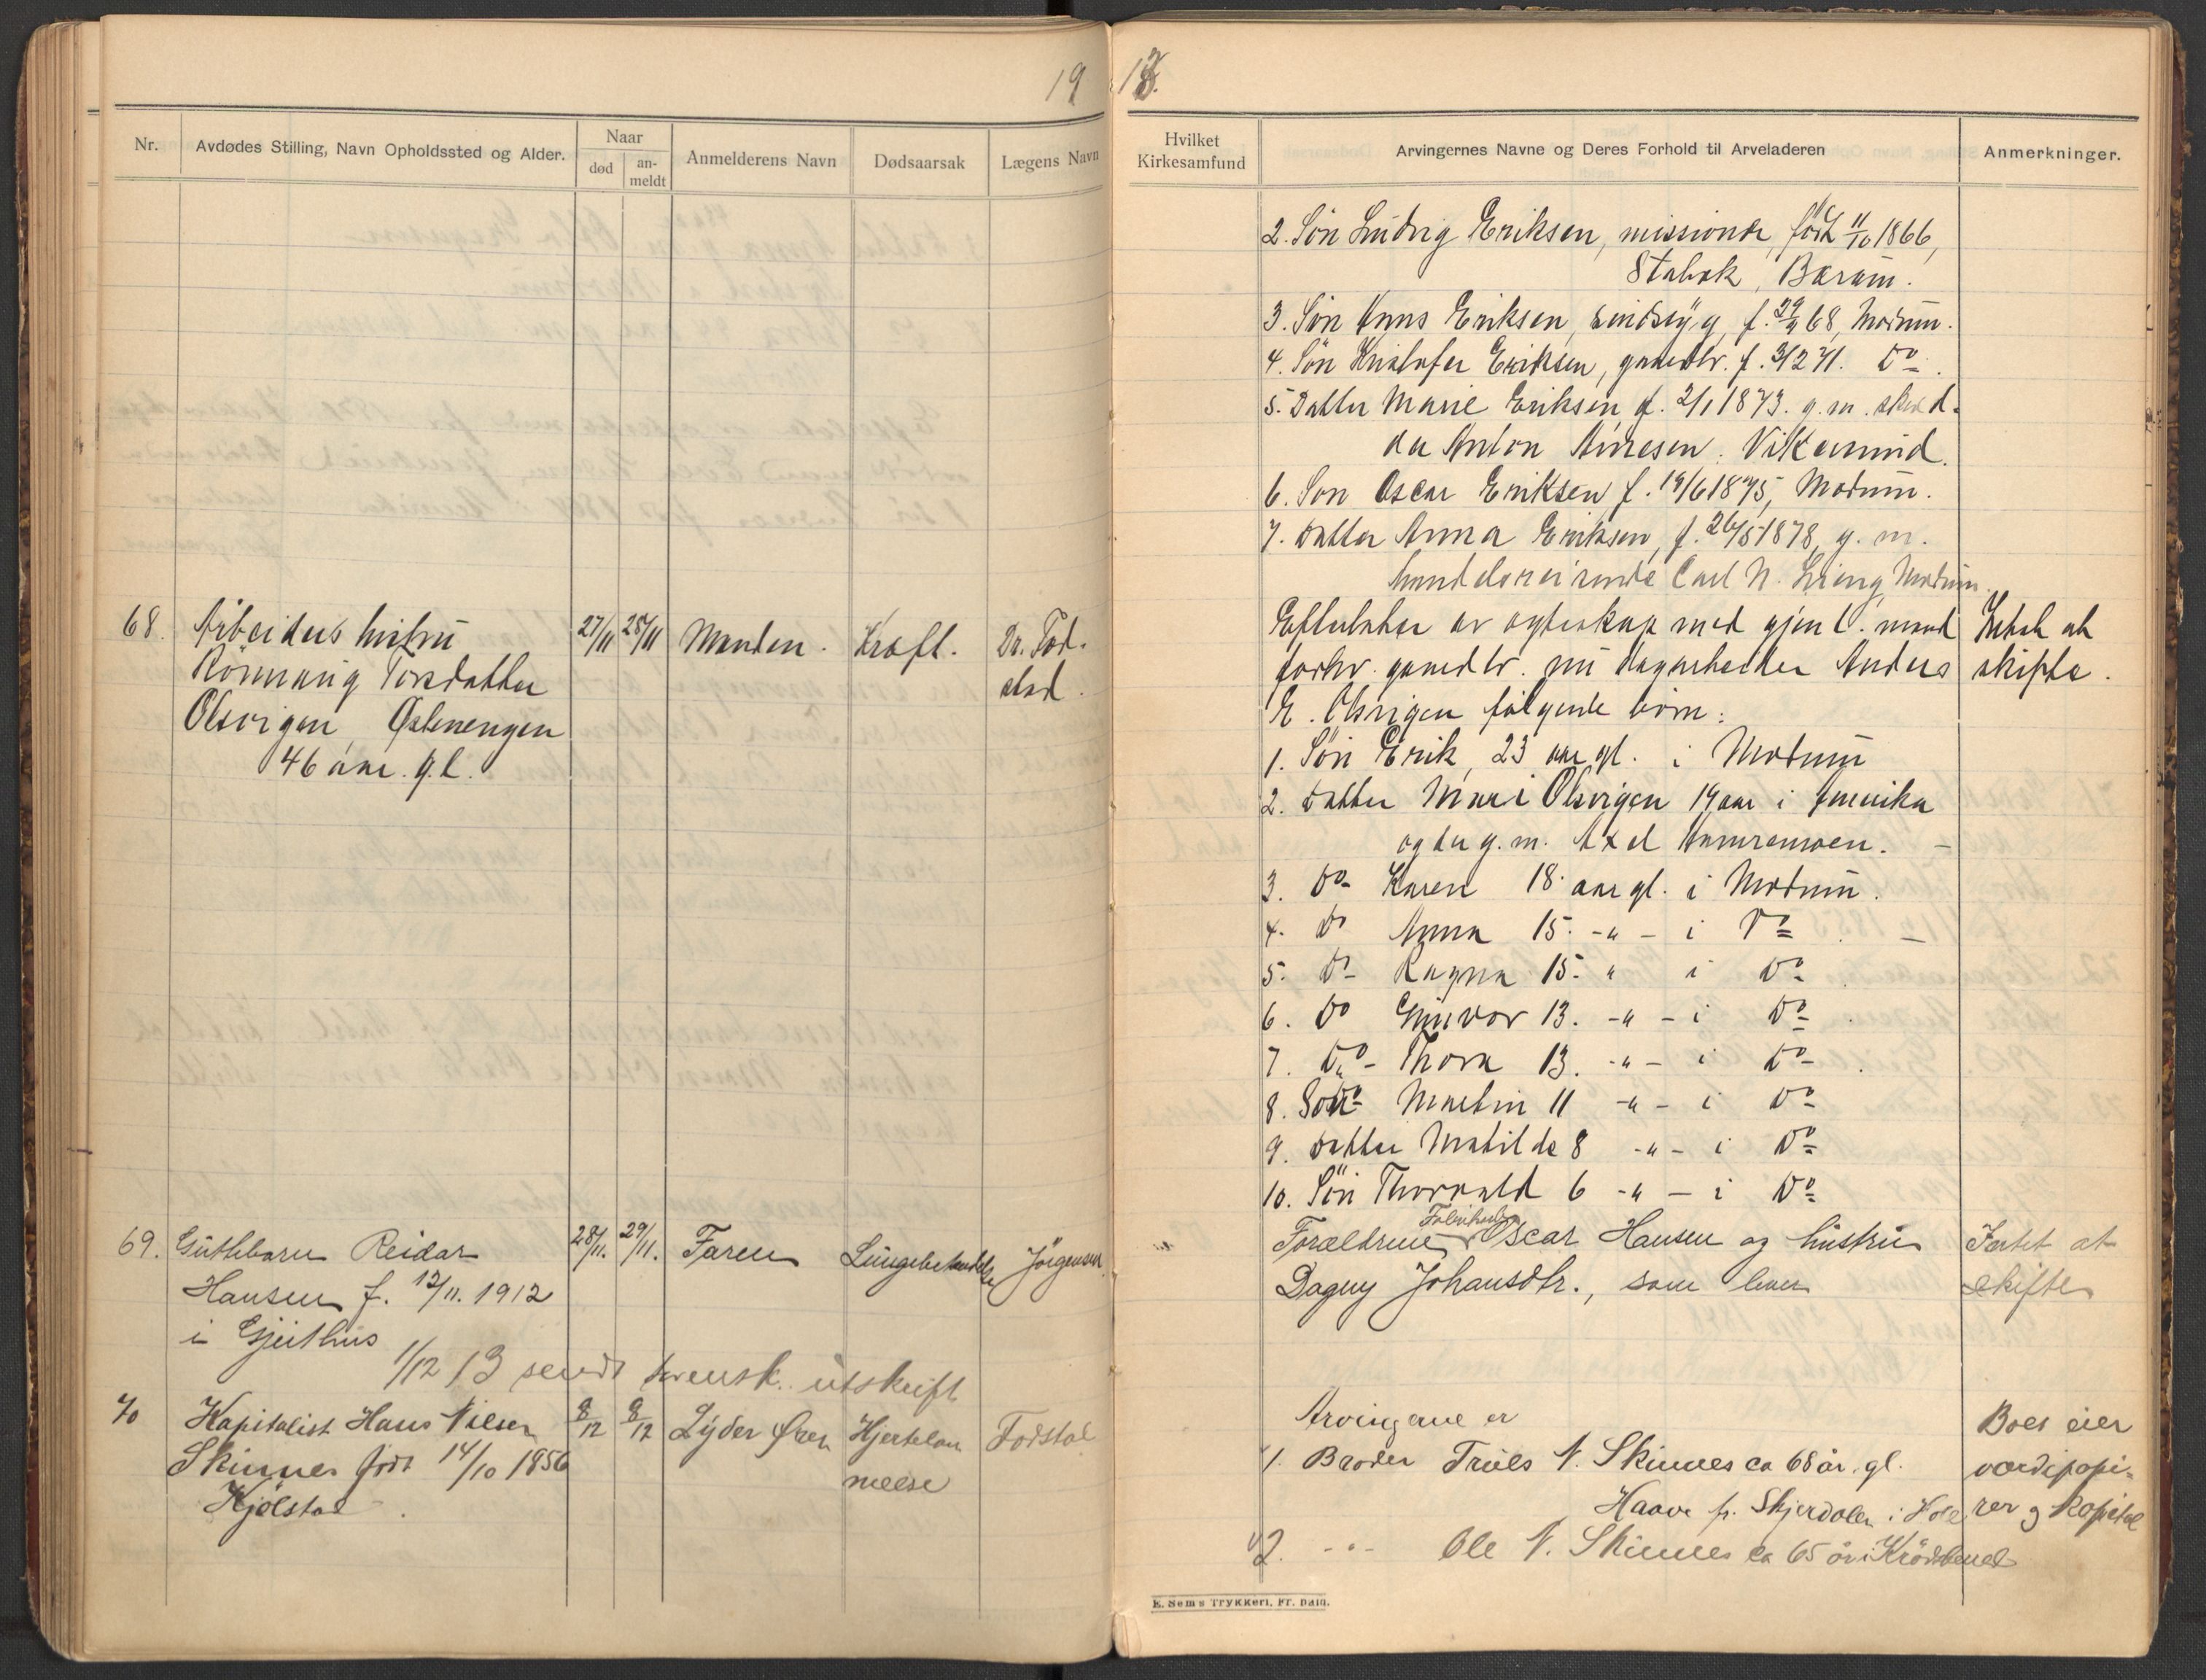 19
13.
Nr.
Avdødes Stilling, Navn Opholdssted og Alder.
Naar
død
an-
meldt
Anmelderens Navn
Dødsaarsak
Lægens Navn
Hvilket
Kirkesamfund
Arvingernes Navne og Deres Forhold til Arveladeren
Anmerkninger.
2. Søn Ludvig Eriksen, missionær, født 11/10 1866,
Stabæk, Bærum.
3. Søn Hans Eriksen, sindsyg, f. 29/4 68, Modum.
4. Søn Kristofer Eriksen, gaardbr. f. 3/2 71. Do.
5. Datter Marie Eriksen, f. 2/1 1873. g. m. skræd-
der Anton Andresen. Vikersund.
6. Søn Oscar Eriksen, f. 19/6 1875, Modum.
7. Datter Anna Eriksen, f. 26/5 1878, g. m.
handelsreisende Carl N. Modum
68.
Arbeiders hustru
Rønnaug Torsdatter
Olsvigen, Østenengen
46 aar. gl.
27/11
28/11
Manden.
Kræft.
Dr. Fod-
stad.
Efterlater av egteskap med gjenl. mand
forhv. gaardbr. nu dagarbeider Anders
E. Olsvigen følgende børn:
1. Søn Erik, 23 aar gl. i Modum
2. Datter Mari Olsvigen 19 aar i Amerika
og er g. m. Axel Hamremoen. -
3. Do- Karen 18 aar gl. i Modum.
4. Do Anna 15. -"- i Do. -
5. Do- Ragna 15. " i Do.
6. Do Gunvor 13. -"- i Do.
7. Do- Thora 13. -"- i Do.
8. Søn Martin 11 -"- i Do
9. Datter Matilde 8 -"- i Do
10. Søn Thorvald 6 -"- i Do
Intet at
skifte.
69.
Guttebarn Reidar
Hansen f. 12/11. 1912
i Gjeithus
28/11.
29/11.
Faren
Lungebetændelse
Jørgensen
Forældrene Fabrikarb. Oscar Hansen og hustru
Dagny Johansdtr., som lever
Intet at
skifte
1/12 13 sendt svensk. utskrift
70
Kapitalist Hans Nilsen
Skinnes født 14/10 1856
Kjølstad.
8/12
9/12
Lyder Øren
Hjertelam
melse
Fodstad
Arvingerne er
1. Broder Truls N. Skinnes ca 68 år. gl.
Haave pr. Skjerdalen i Hole
2. -"- Ole N. Skinnes ca 65 år i Krødsherred
Boet eier
værdipapi-
rer og kapital
E. Sem's Trykkeri, Fr. hald.